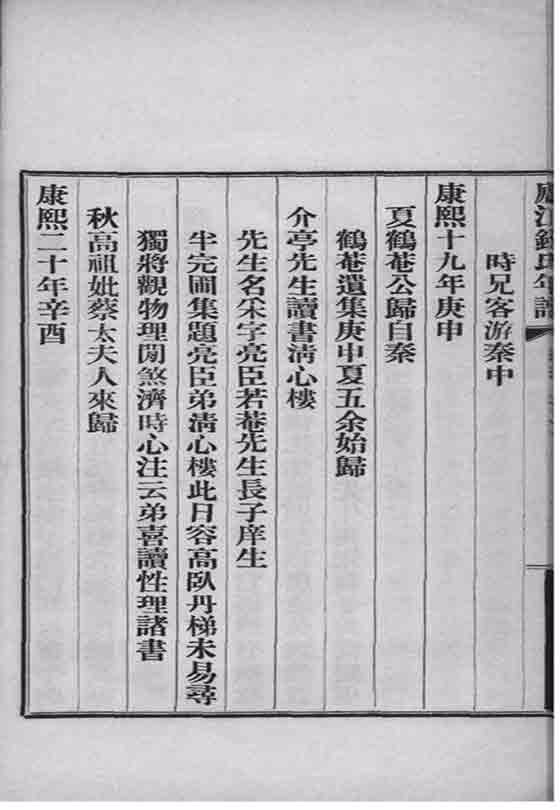 錢氏年譜
時兄客游秦中
康熙十九年庚申
夏鶴菴公歸自秦
鶴菴遺集庚申夏五余始歸
介亭先生讀書淸心樓
先生名采字亮臣若菴先生長子庠生
半完圃集題亮臣弟淸心樓此日容高臥丹梯未易尋
獨將觀物理閒煞濟時心注云弟喜讀性理諸書
秋高祖妣蔡太夫人來歸
康熙二十年辛酉